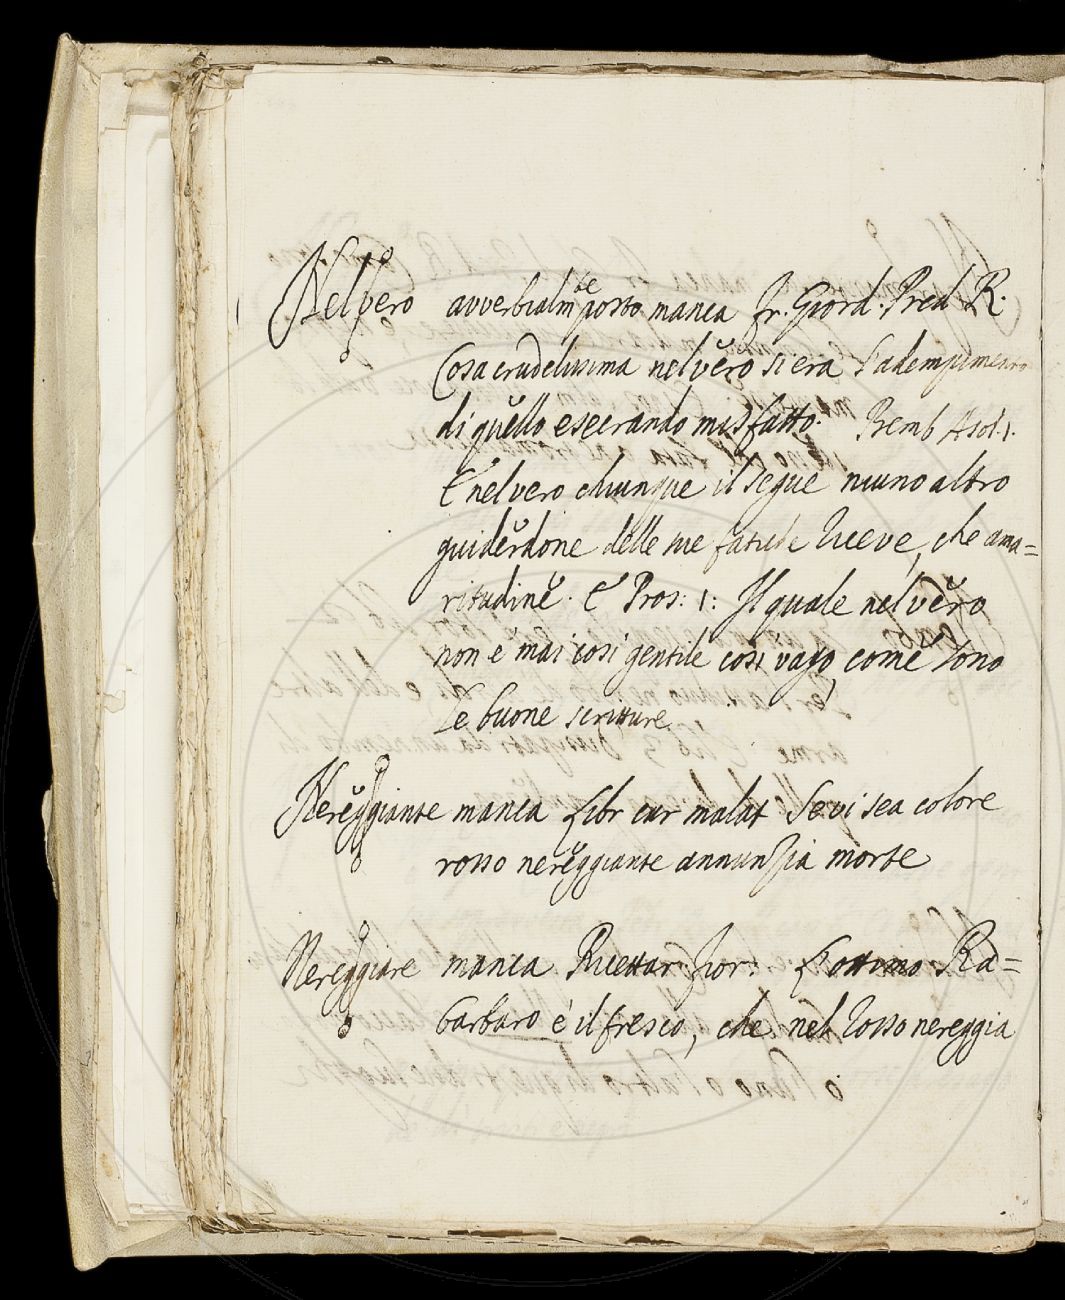 Nel vero avverbialm.te posto manca Fr. Giord. Pred R.
Cosa crudelissima nel vero si era l'adempimento
di quello esecrando misfatto. Bemb Asol. 1.
E nel vero chiunque il segue niuno altro
guiderdone delle sue fatiche riceve, che ama=
ritudine. E Pros: 1: Il quale nel vero
non e mai cosi gentile cosi vago, come sono
le buone scritture
Nereggiante manca Libr cur malat Se vi sea colore
rosso nereggiante annunzia morte
Nereggiare manca Ricettar Fior: L'ottimo Ra=
barbaro è il fresco, che nel rosso nereggia